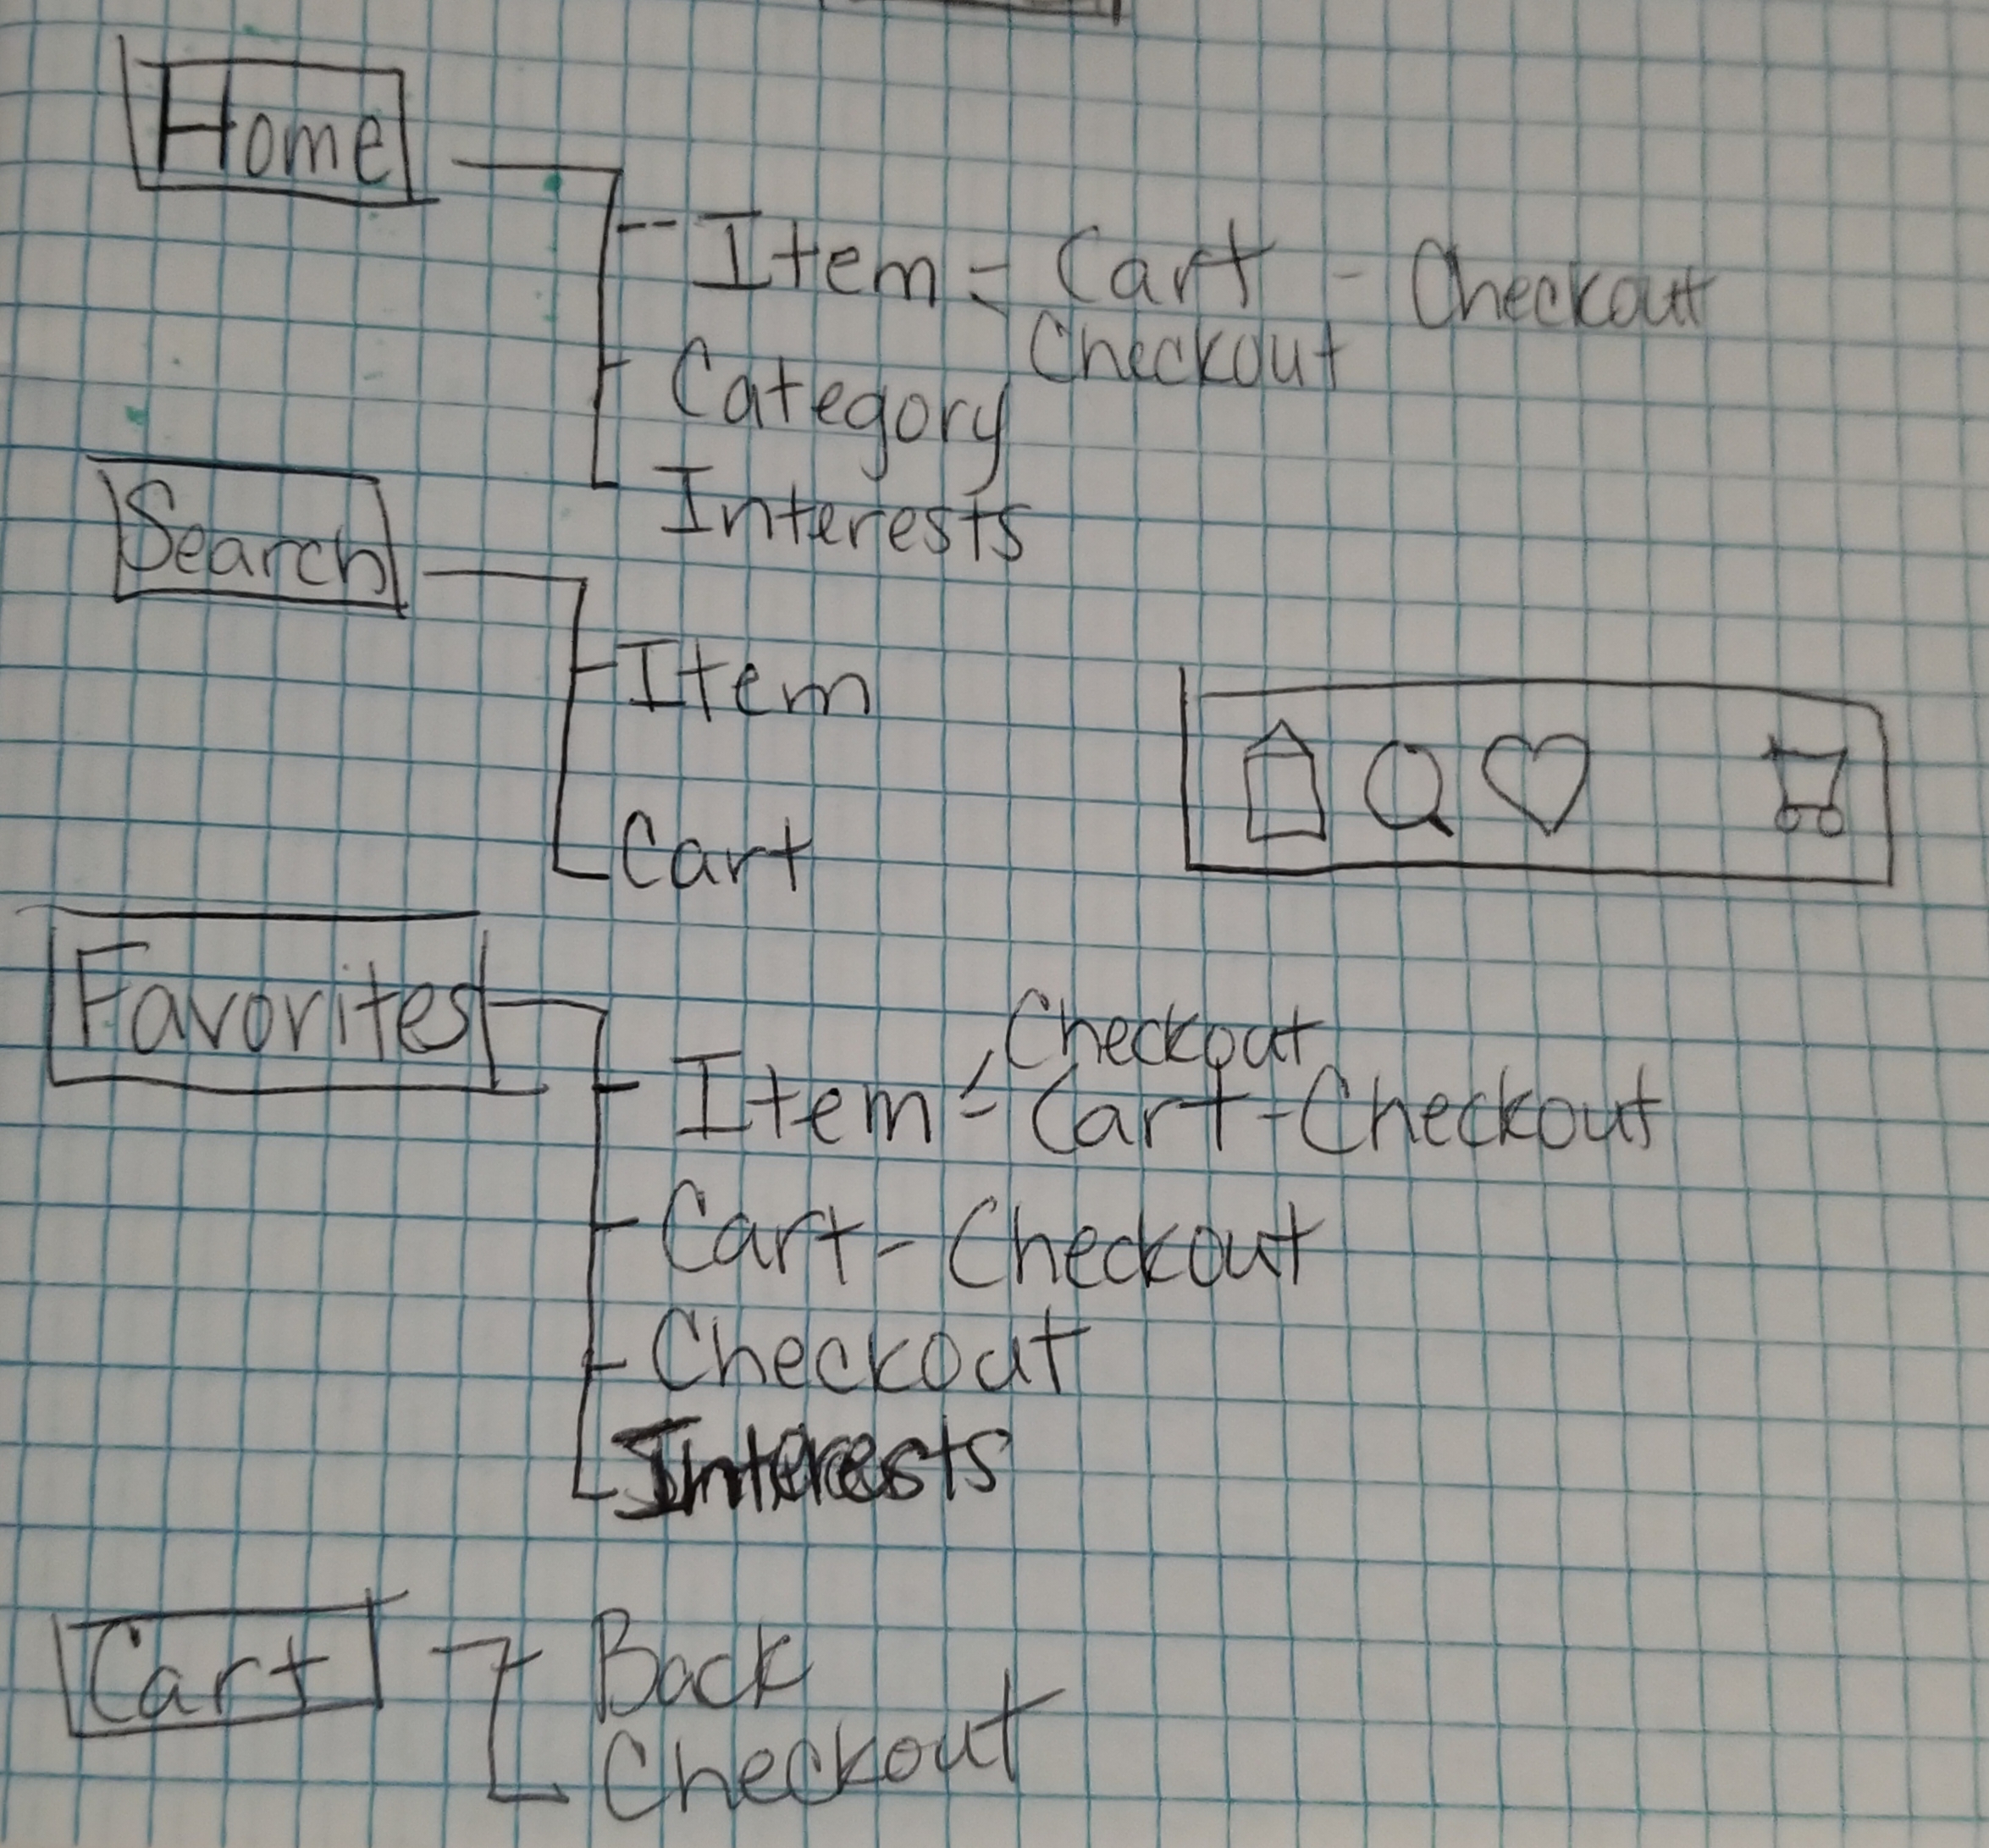 Home
Item = Cart - Checkout
Checkout
Category
Interests
Search
Item
Cart
Favorites
Checkout
Item = Cart - Checkout
Cart - Checkout
Checkout
Interests
Cart
Back
Checkout